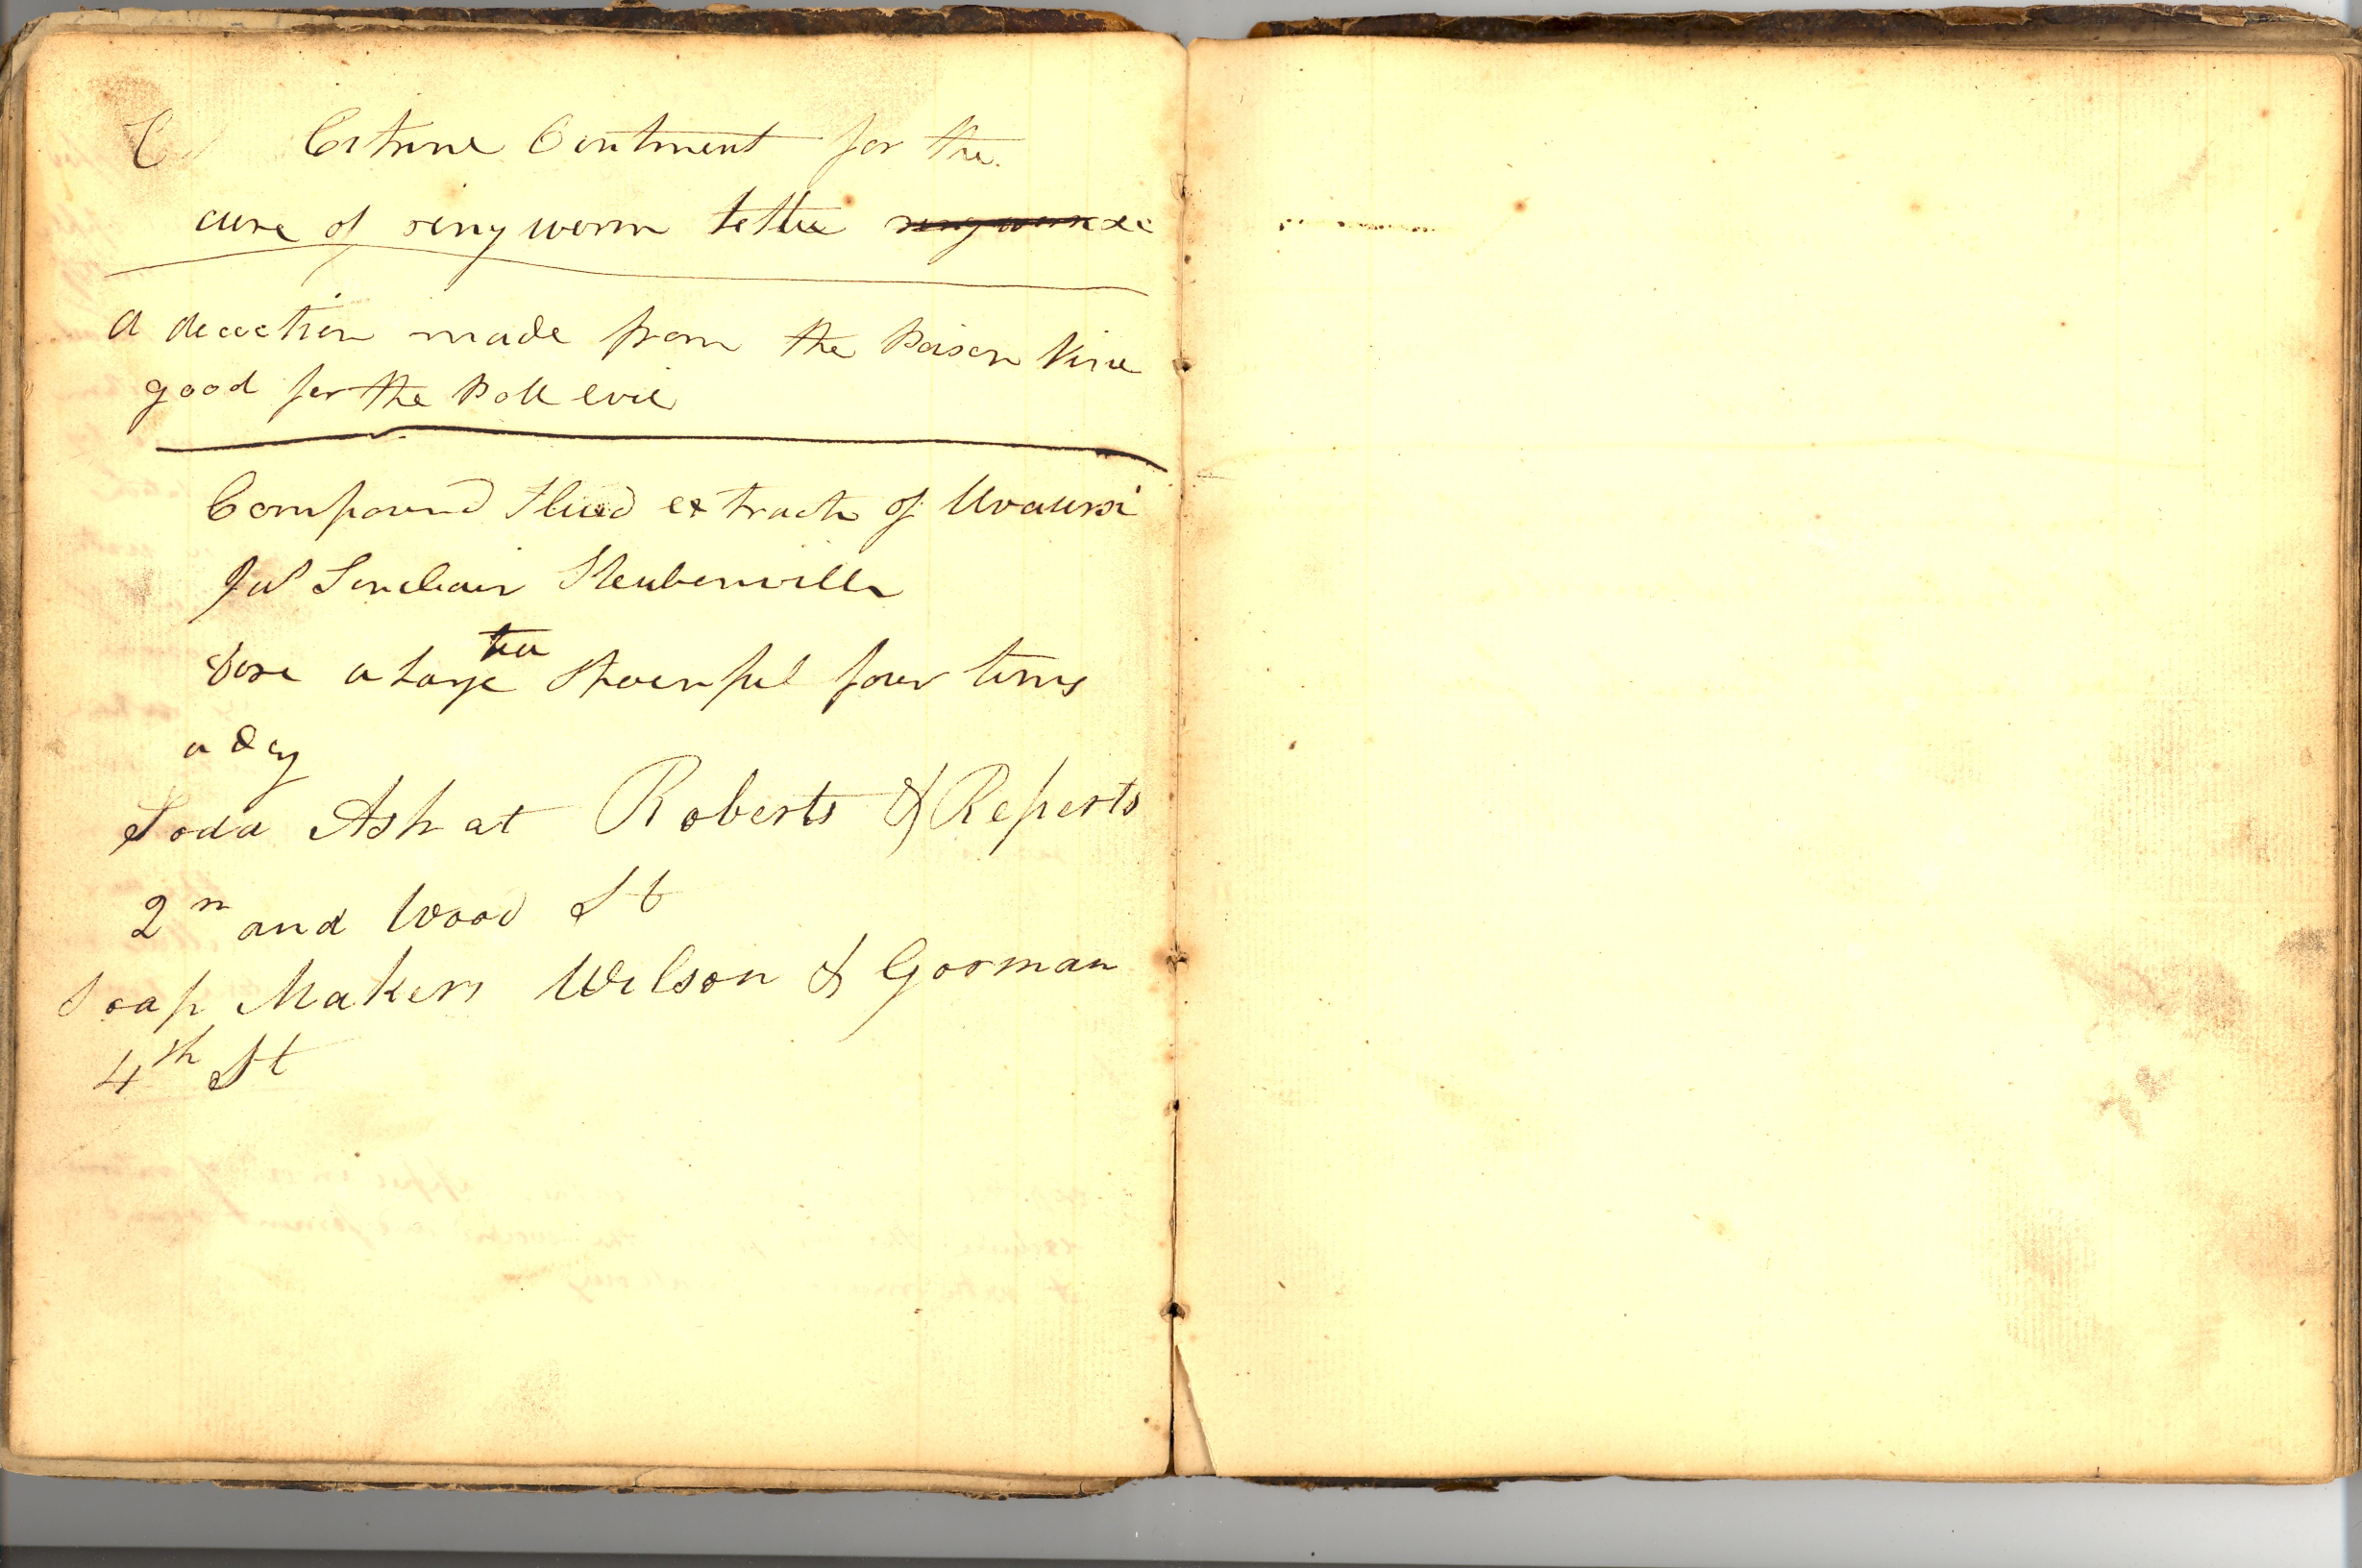 C Citrine Ointment for the
cure of ringworm tetter ringworm &c
a decoction made from the Poison Vine
good for the Poll evil
Compound Fluid extract of Uvaursi
Jas Sinclair Steubenville
dose a Large tea Spoonful four times
a day
Soda Ash at Roberts & Reperts
2n and Wood St
Soap Makers Wilson & Gorman
4th St